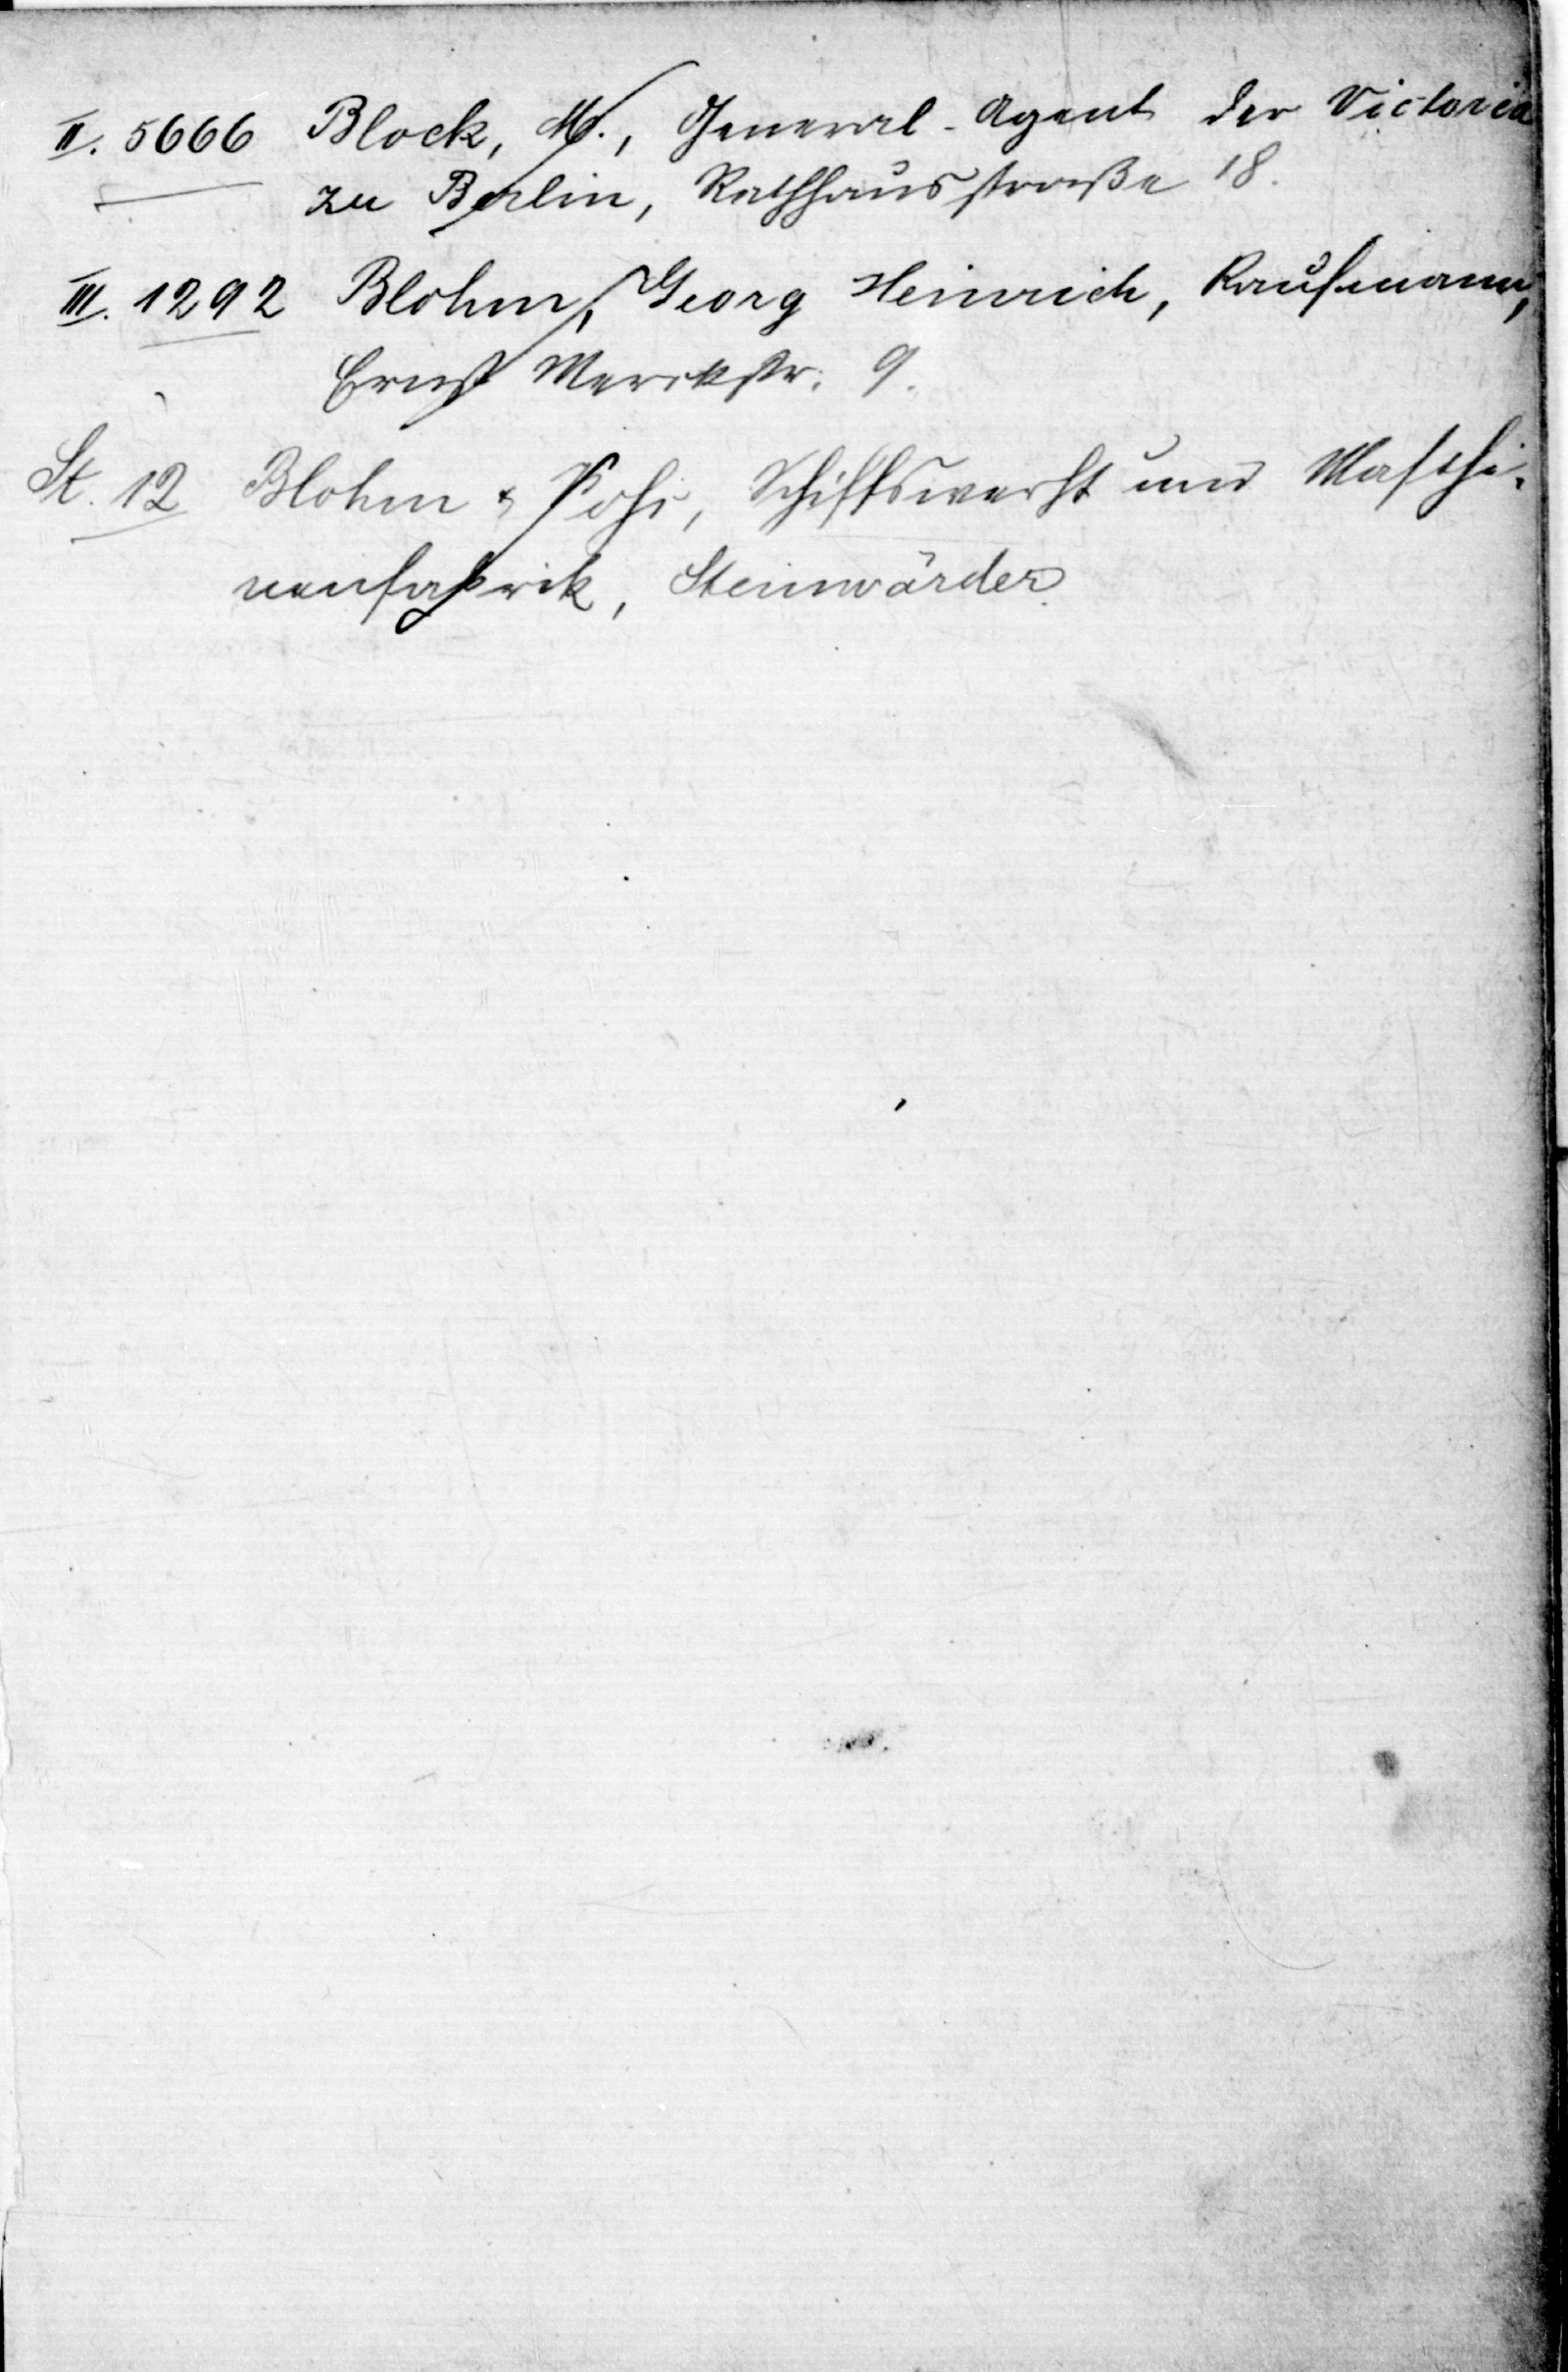 II. 5666 Block, M., General-Agent der Victoria
zu Berlin, Rathhausstraße 18.
III. 1292 Blohm, Georg Heinrich, Kaufmann,
Ernst Merckstr. 9.
St. 12 Blohm & Voss, Schiffswerft und Maschi-
nenfabrik, Steinwärder